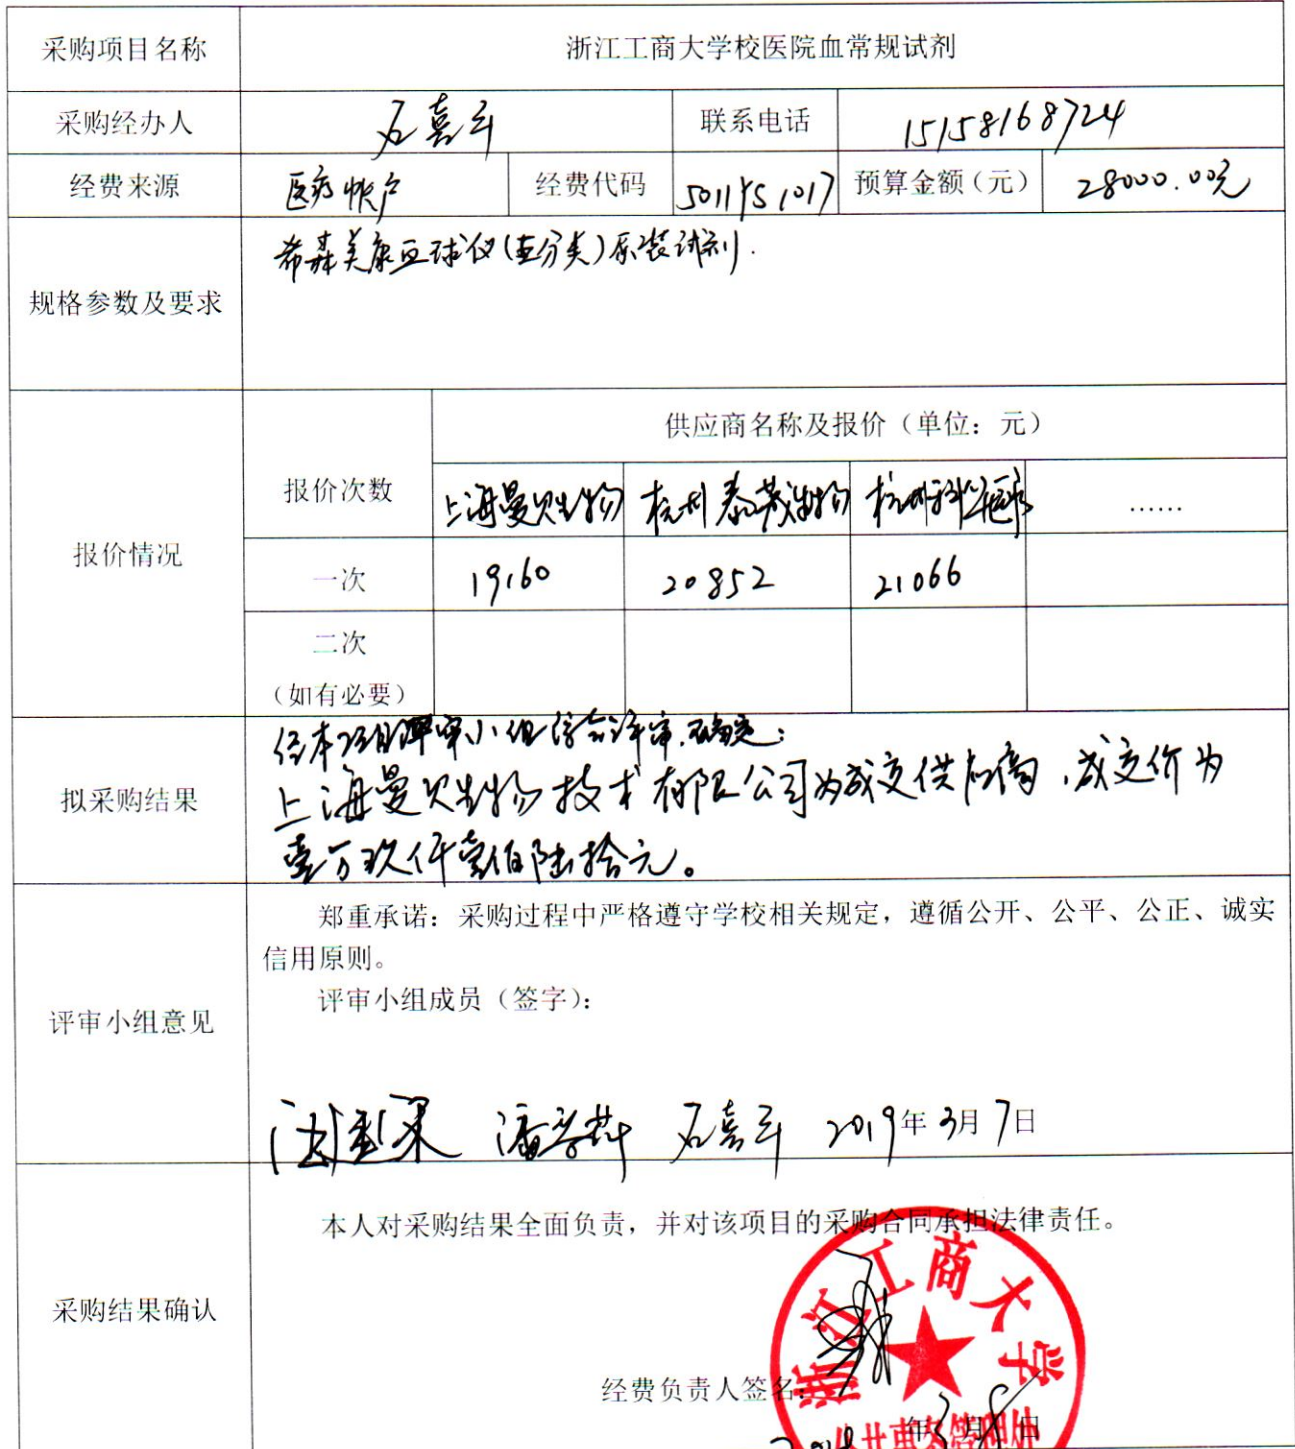 采购项目名称 浙江工商大学校医院血常规试剂
采购经办人 石嘉玉 联系电话 15158168724
经费来源 医疗帐户 经费代码 预算金额（元） 28000.00元
规格参数及要求 希森美康血球仪(五分类)原装试剂.
报价情况 报价次数 供应商名称及报价（单位：元）
上海曼贝生物 杭州泰茂生物 ……
一次 19160 20852 21066
二次
（如有必要）
拟采购结果 经本项目评审小组综合评审,确定:
上海曼贝生物技术有限公司为成交供应商,成交价为
壹万玖仟壹佰陆拾元。
评审小组意见 郑重承诺：采购过程中严格遵守学校相关规定，遵循公开、公平、公正、诚实
信用原则。
评审小组成员（签字）：
2019年3月7日
采购结果确认 本人对采购结果全面负责，并对该项目的采购合同承担法律责任。
浙江工商大学
经费负责人签名：
年3月8日